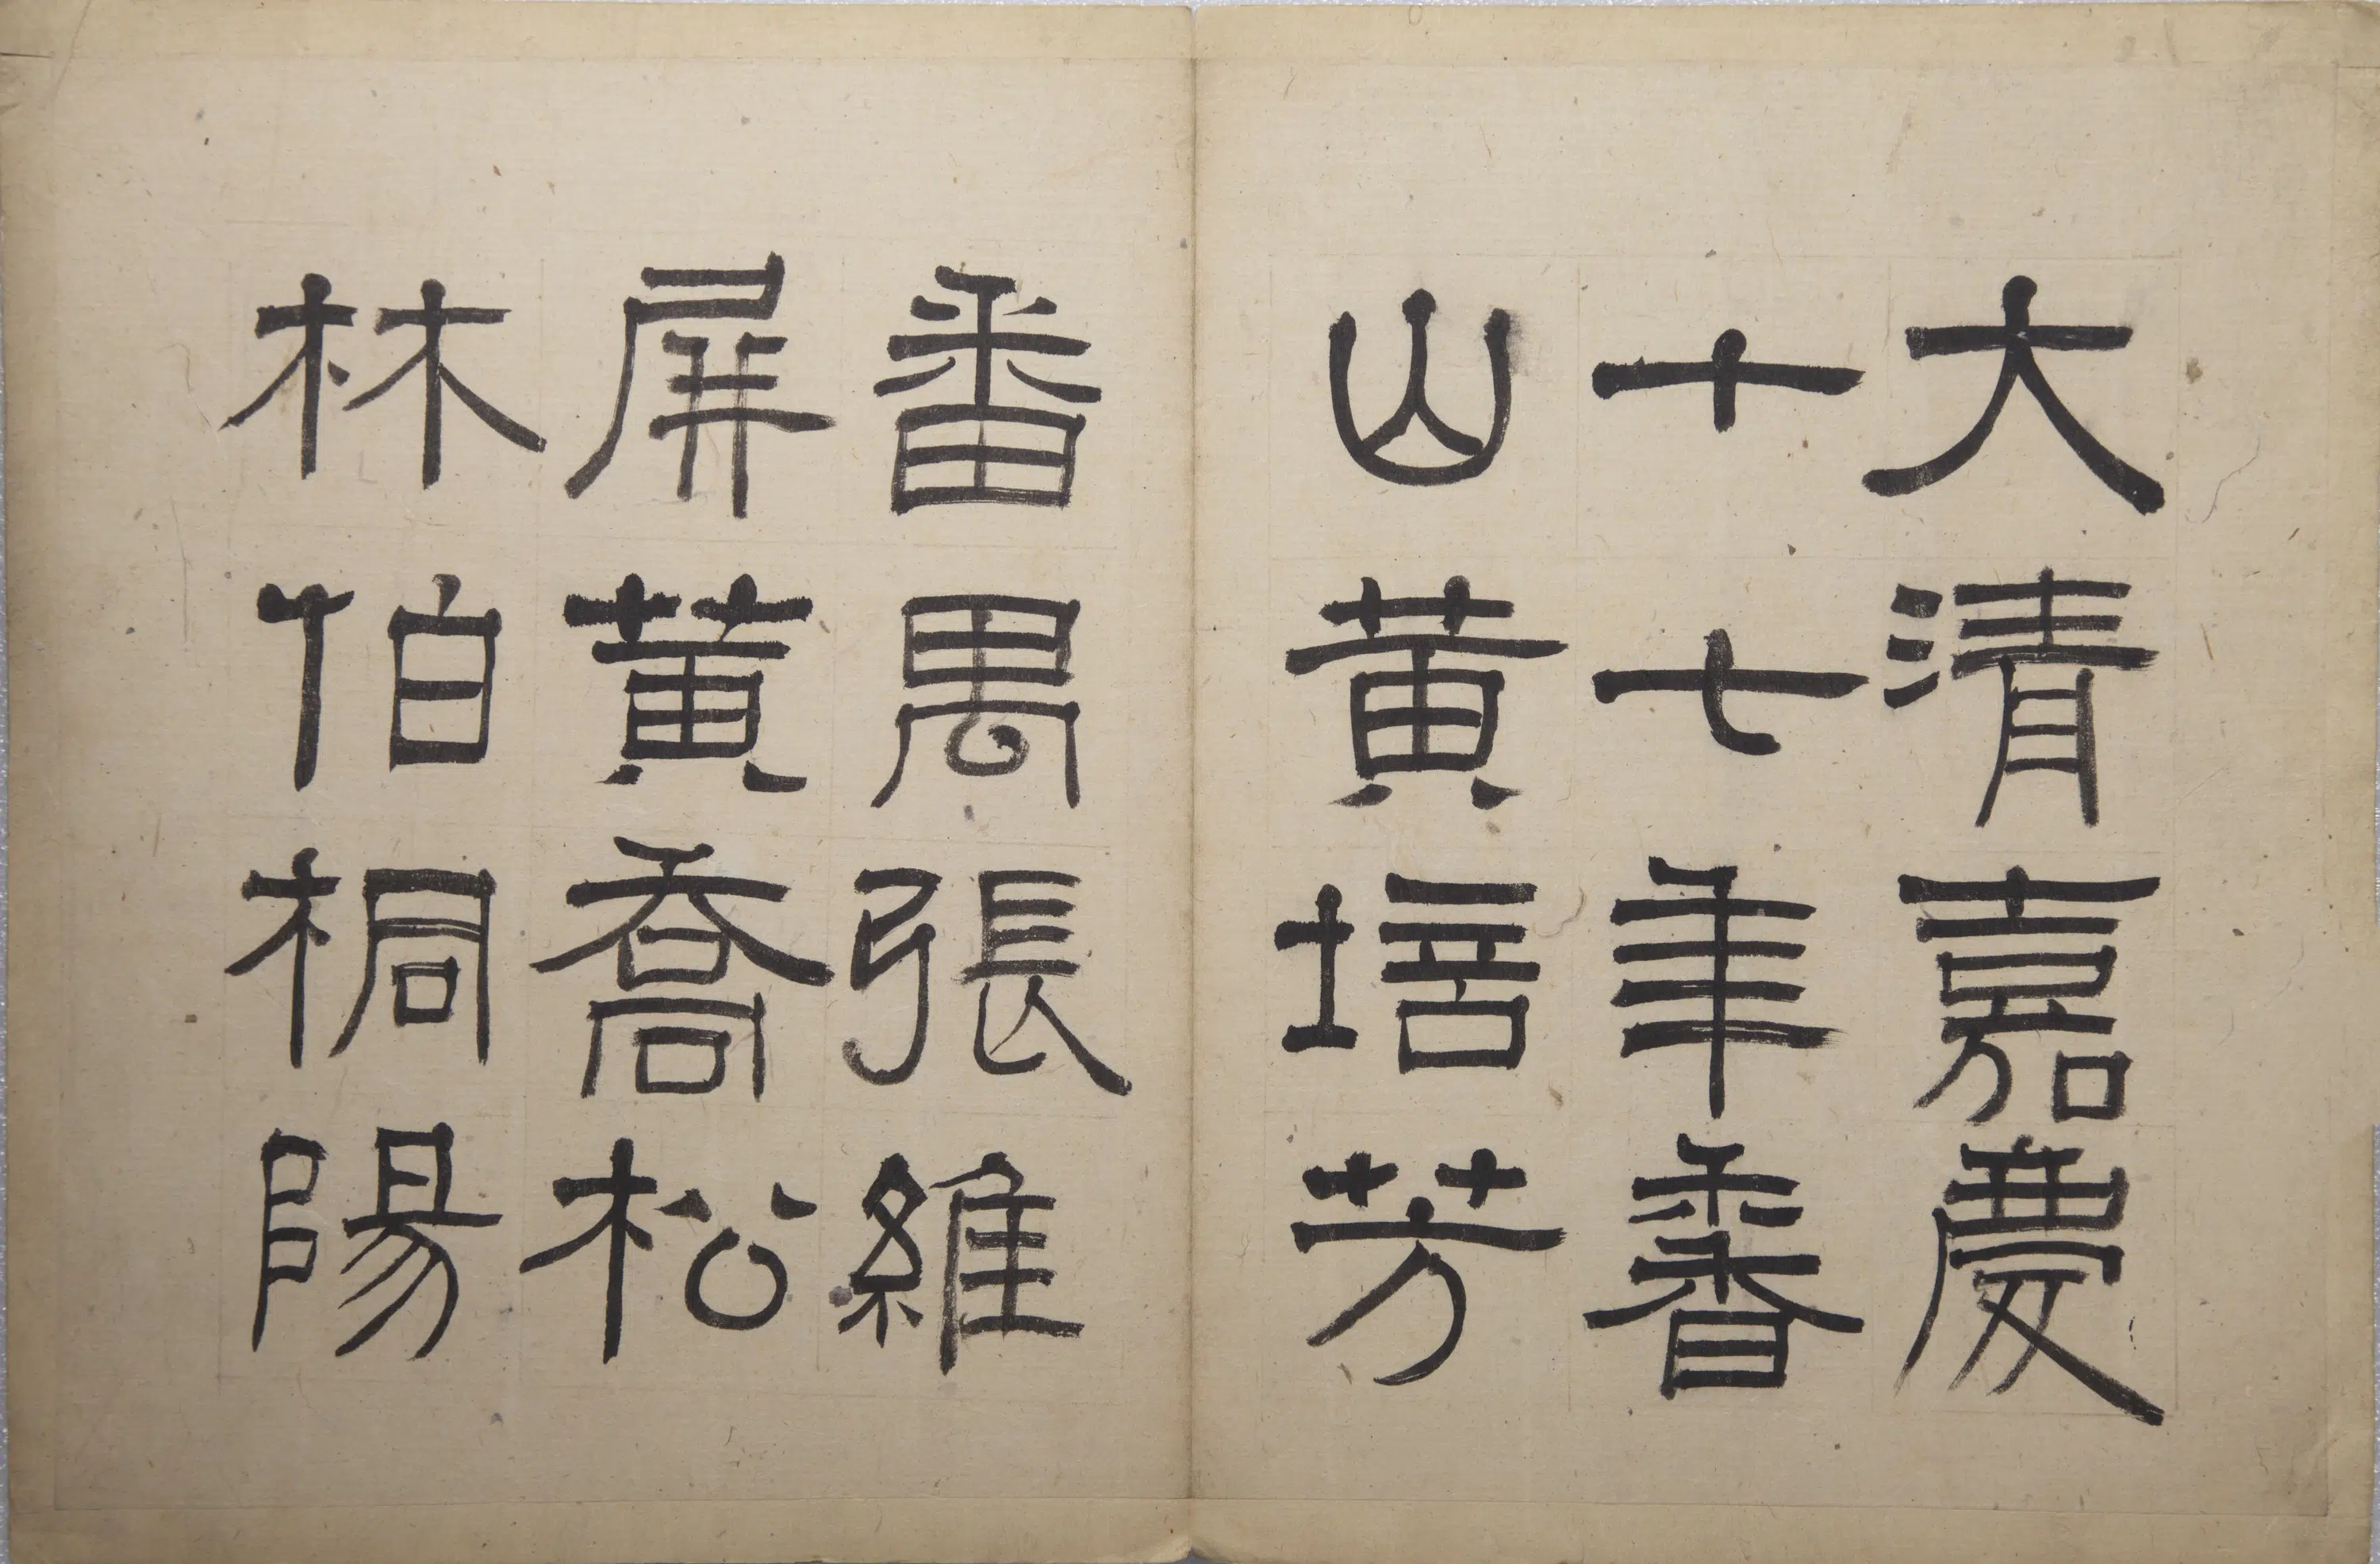 大清嘉慶
十七年香
山黃培芳
番禺張維
屏黃喬松
林伯桐陽